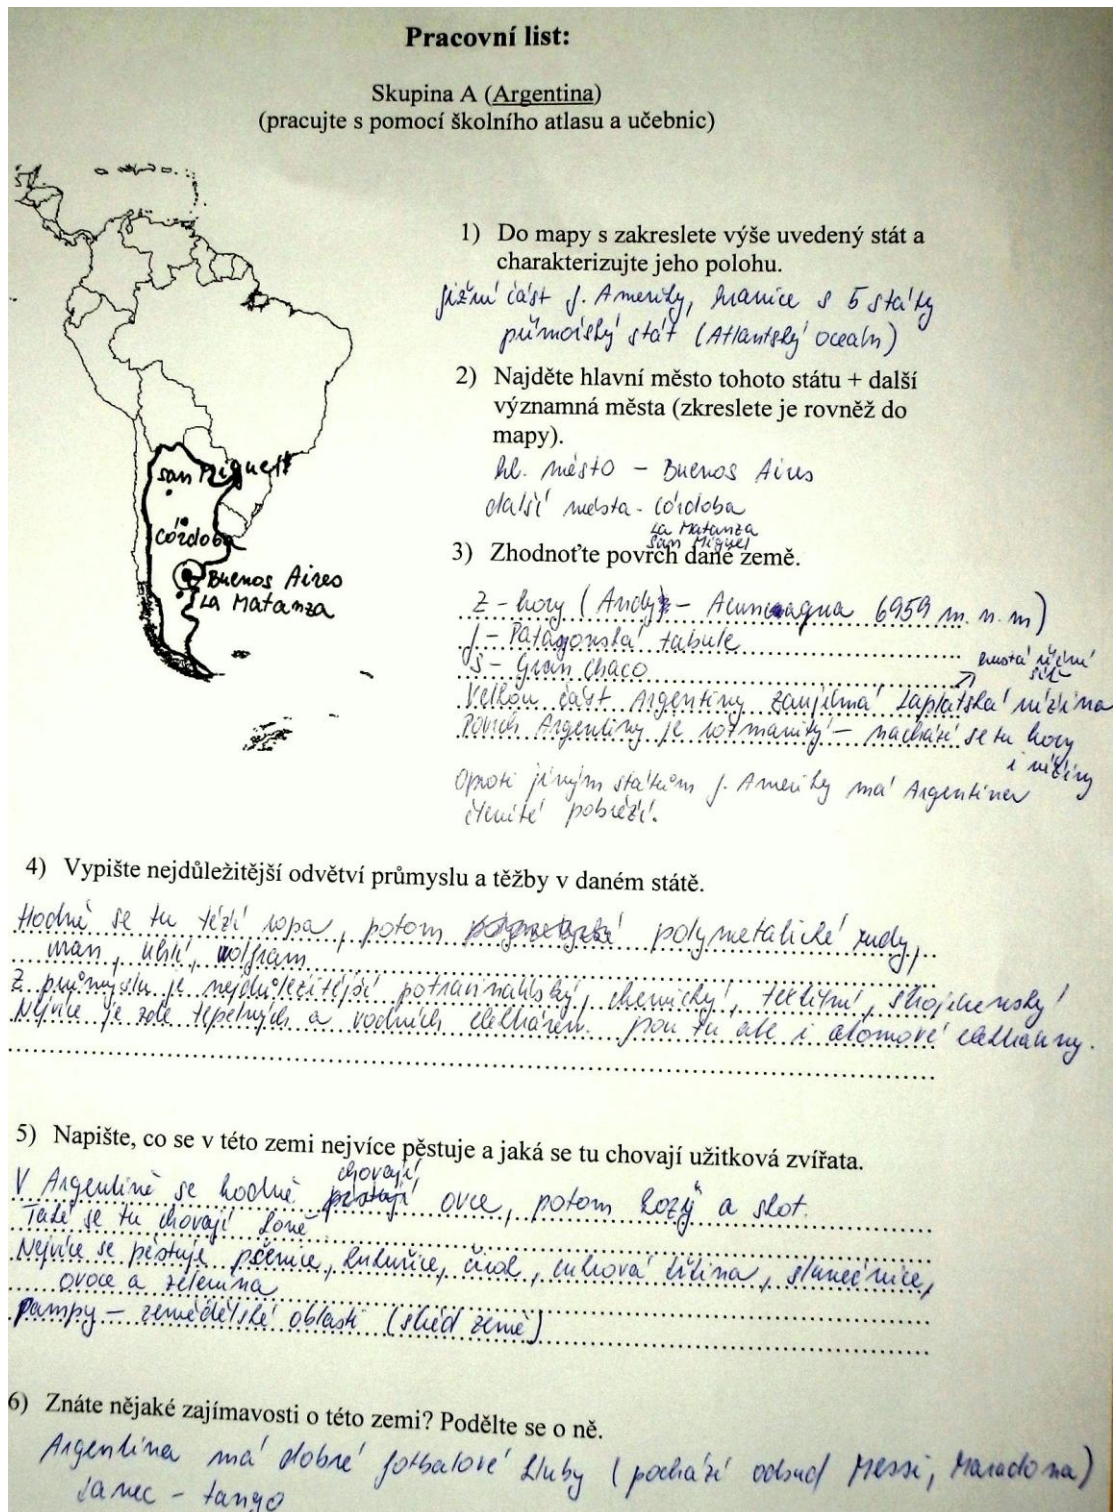 Pracovní list:
Skupina A (Argentina)
(pracujte s pomocí školního atlasu a učebnic)
San Miguel
Córdoba
Buenos Aires
La Matanza
1) Do mapy s zakreslete výše uvedený stát a
charakterizujte jeho polohu.
jižní část J. Ameriky, hranice s 5 státy
přímořský stát (Atlantský oceán)
2) Najděte hlavní město tohoto státu + další
významná města (zkreslete je rovněž do
mapy).
hl. město - Buenos Aires
další města - Córdoba
La Matanza
San Miguel
3) Zhodnoťte povrch dané země.
Z - hory (Andy - Aconcagua 6959 m. n. m)
J - Patagonská tabule
S - Gran Chaco
hustá říční
síť
Velkou část Argentiny zaujímá Laplatská nížina
Povrch Argentiny je rozmanitý - nachází se tu hory
i nížiny
Oproti jiným státům J. Ameriky má Argentina
členité pobřeží.
4) Vypište nejdůležitější odvětví průmyslu a těžby v daném státě.
Hodně se tu těží ropa, potom polymetalické rudy,
uran, uhlí, wolfram
Z průmyslu je nejdůležitější potravinářský, chemický, textilní, strojírenský
Nejvíce je zde tepelných a vodních elektráren. jsou tu ale i atomové elektrárny.
5) Napište, co se v této zemi nejvíce pěstuje a jaká se tu chovají užitková zvířata.
chovají
V Argentině se hodně pěstují ovce, potom kozy a skot.
Také se tu chovají koně
Nejvíce se pěstuje pšenice, kukuřice, čirok, cukrová třtina, slunečnice,
ovoce a zelenina
pampy - zemědělské oblasti (střed země)
6) Znáte nějaké zajímavosti o této zemi? Podělte se o ně.
Argentina má dobré fotbalové kluby (pochází odsud Messi, Maradona)
tanec - tango